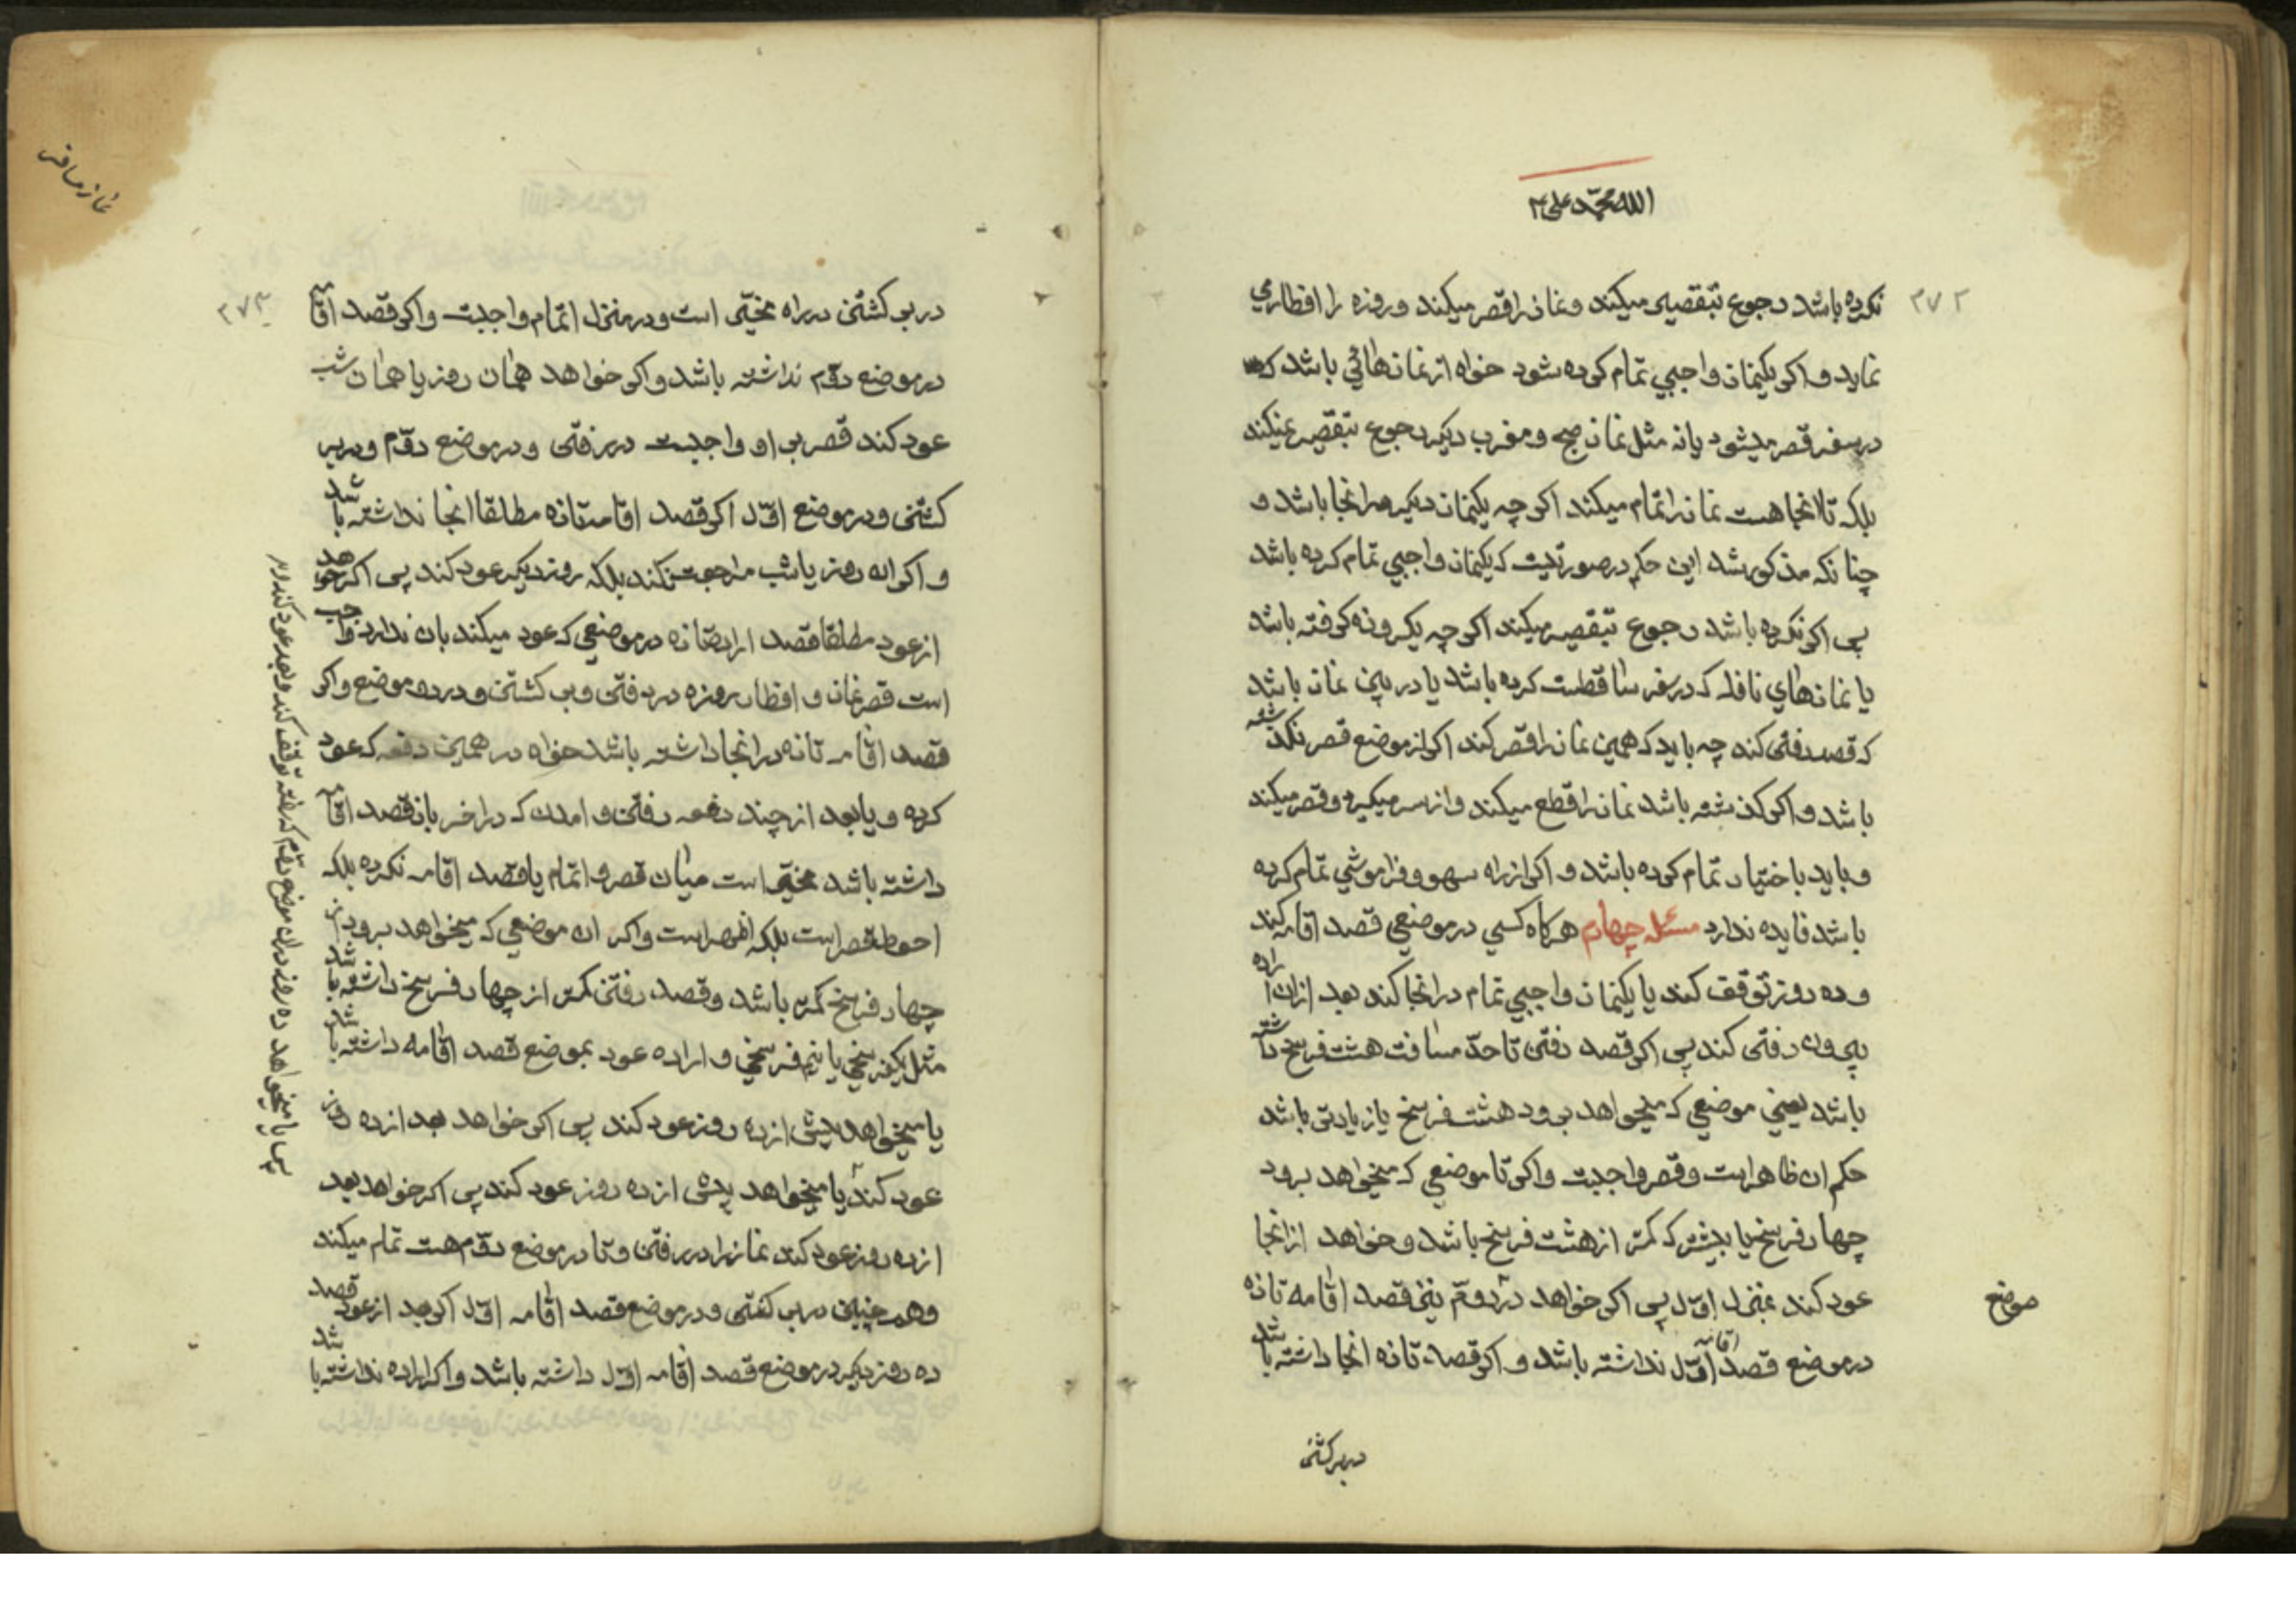 الله محمد علی
۲۷۲
نکرده باشد رجوع بتقصیر میکند و نماز را قصر میکند و روزه را افطار می
نماید و اکر یکنماز واجبی تمام کرده شود خواه از نمازهائی باشد که
در سفر قصر میشود یا نه مثل نماز صبح و مغرب دیکر رجوع بتقصیر نمیکند
بلکه تا انجا هست نماز را تمام میکند اکر چه یکنماز دیکر در انجا باشد و
چنانکه مذکور شد این حکم در صورتیست که یکنماز واجبی تمام کرده باشد
پس اکر نکرده باشد رجوع بتقصیر میکند اکر چه یکروزه کرفته باشد
یا نمازهای نافله که در سفر ساقطست کرده باشد یا در بین نماز باشد
که قصد رفتن کند چه باید که همین نماز را قصر کند اکر از موضع قصر نکذشته
باشد و اکر کذشته باشد نماز را قطع میکند و از سر میکیرد و قصر میکند
و باید باختیار تمام کرده باشد و اکر از راه سهو و فراموشی تمام کرده
باشد فایده ندارد مسئله چهارم هرکاه کسی در موضعی قصد اقامه کند
و ده روز توقف کند یا یکنماز واجبی تمام در انجا کند بعد از ان اراده
بیرون رفتن کند پس اکر قصد رفتن تا حد مسافت هشت فرسخ داشته
باشد یعنی موضعی که میخواهد برود هشت فرسخ یا زیادتی باشد
حکم ان ظاهر است و قصر واجبست و اکر تا موضعی که میخواهد برود
چهار فرسخ یا بیشتر که کمتر از هشت فرسخ باشد و خواهد از انجا
عود کند بمنزل اول پس اکر خواهد در دوم یعنی قصد اقامه تازه
موضع
در موضع قصد اقامه اول نداشته باشد و اکر قصد تازه انجا داشته باشد
در بر کشتن
نماز مسافر
۲۷۳
در بر کشتن در راه مخیر است و در منزل اتمام واجبست و اکر قصد اقامه
در موضع دوم نداشته باشد و اکر خواهد همان روز یا همان شب
عود کند قصر بر او واجبست در رفتن و در موضع دوم و در بر
کشتن و در موضع اول اکر قصد اقامت تازه مطلقا انجا نداشته باشد
و اکر ان روز یا شب مراجعت نکند بلکه روز دیکر عود کند پس اکر خواهد
از عود مطلقا قصد تازه در موضعی که عود میکند بان ندارد واجب
است قصر نماز و افطار روزه در رفتن و بر کشتن و در ده موضع و اکر
قصد اقامه تازه در انجا داشته باشد خواه در همین دفعه که عود
کرده و یا بعد از چند دفعه رفتن و امدن که در اخر بان قصد اقامه
داشته باشد مخیر است میان قصر و اتمام یا قصد اقامه نکرده بلکه
احوط قصر است بلکه اظهر است و اکر ان موضعی که میخواهد برود از
چهار فرسخ کمتر باشد و قصد رفتن کمتر از چهار فرسخ داشته باشد
مثل یکفرسخی یا نیم فرسخی و اراده عود بموضع قصد اقامه داشته باشد
یا میخواهد پیش از ده روز عود کند پس اکر خواهد بعد از ده روز
عود کند یا میخواهد پیش از ده روز عود کند پس اکر خواهد بعد
از ده روز عود کند نماز را در رفتن و تا در موضع دوم هست تمام میکند
و همچنین در بر کشتن و در موضع قصد اقامه اول اکر بعد از عود قصد
ده روز دیکر در موضع قصد اقامه اول داشته باشد و اکر اراده نداشته باشد
پس یا میخواهد ده روز در ان موضع دوم که رفته توقف کند و بعد عود کند و در